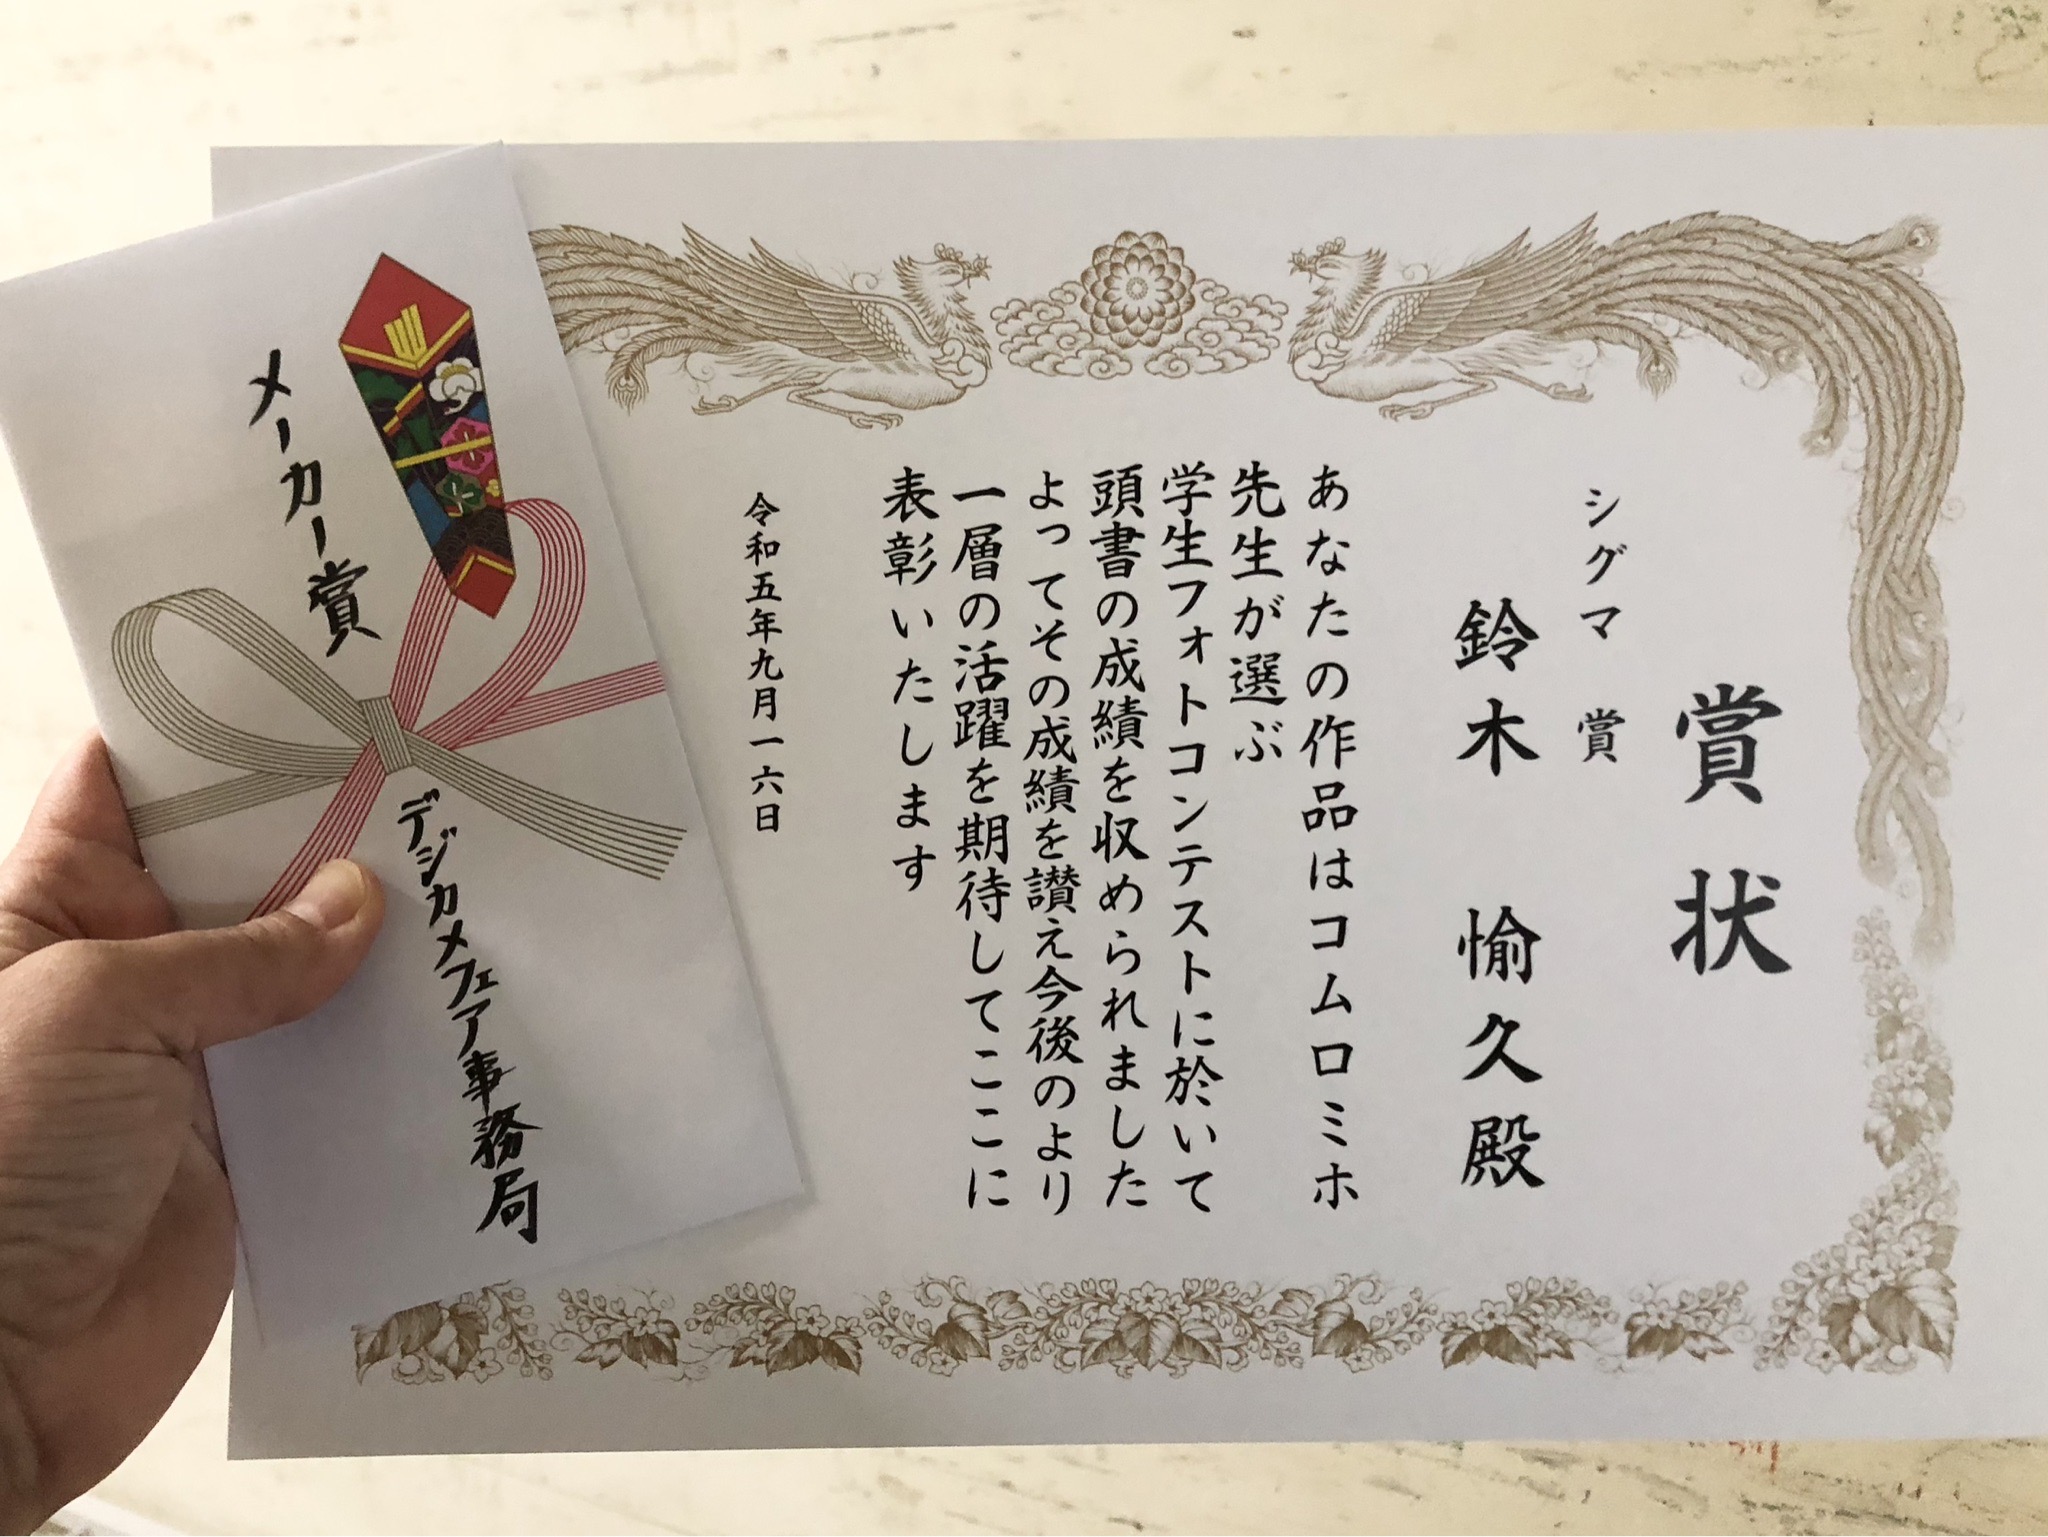 賞状
シグマ賞
鈴木 愉久殿
あなたの作品はコムロミホ
先生が選ぶ
学生フォトコンテストに於いて
頭書の成績を収められました
よってその成績を讃え今後のより
一層の活躍を期待してここに
表彰いたします
令和五年九月一六日
メーカー賞
デジカメフェア事務局